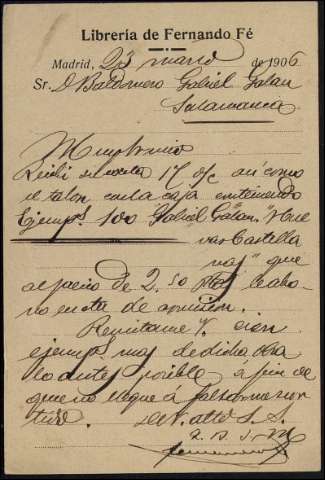 Librería de Fernando Fé
Madrid, 23 marzo de 1906
Sr. D Baldomero Gabriel Galan
Salamanca
Muy Sr mio
Recibi su carta 17 o/c asi como
el talon con la caja conteniendo
Ejemps. 100 "Gabriel Galan" "Nue
vas Castella
nas" que
al precio de 2.50 Ptas le abo
no en cta de comision.
Remitame V. cien
ejemps mas de dicha obra
lo antes posible á fin de
que no llegue á faltarme
de V. atto S. S.
q. b. s. m